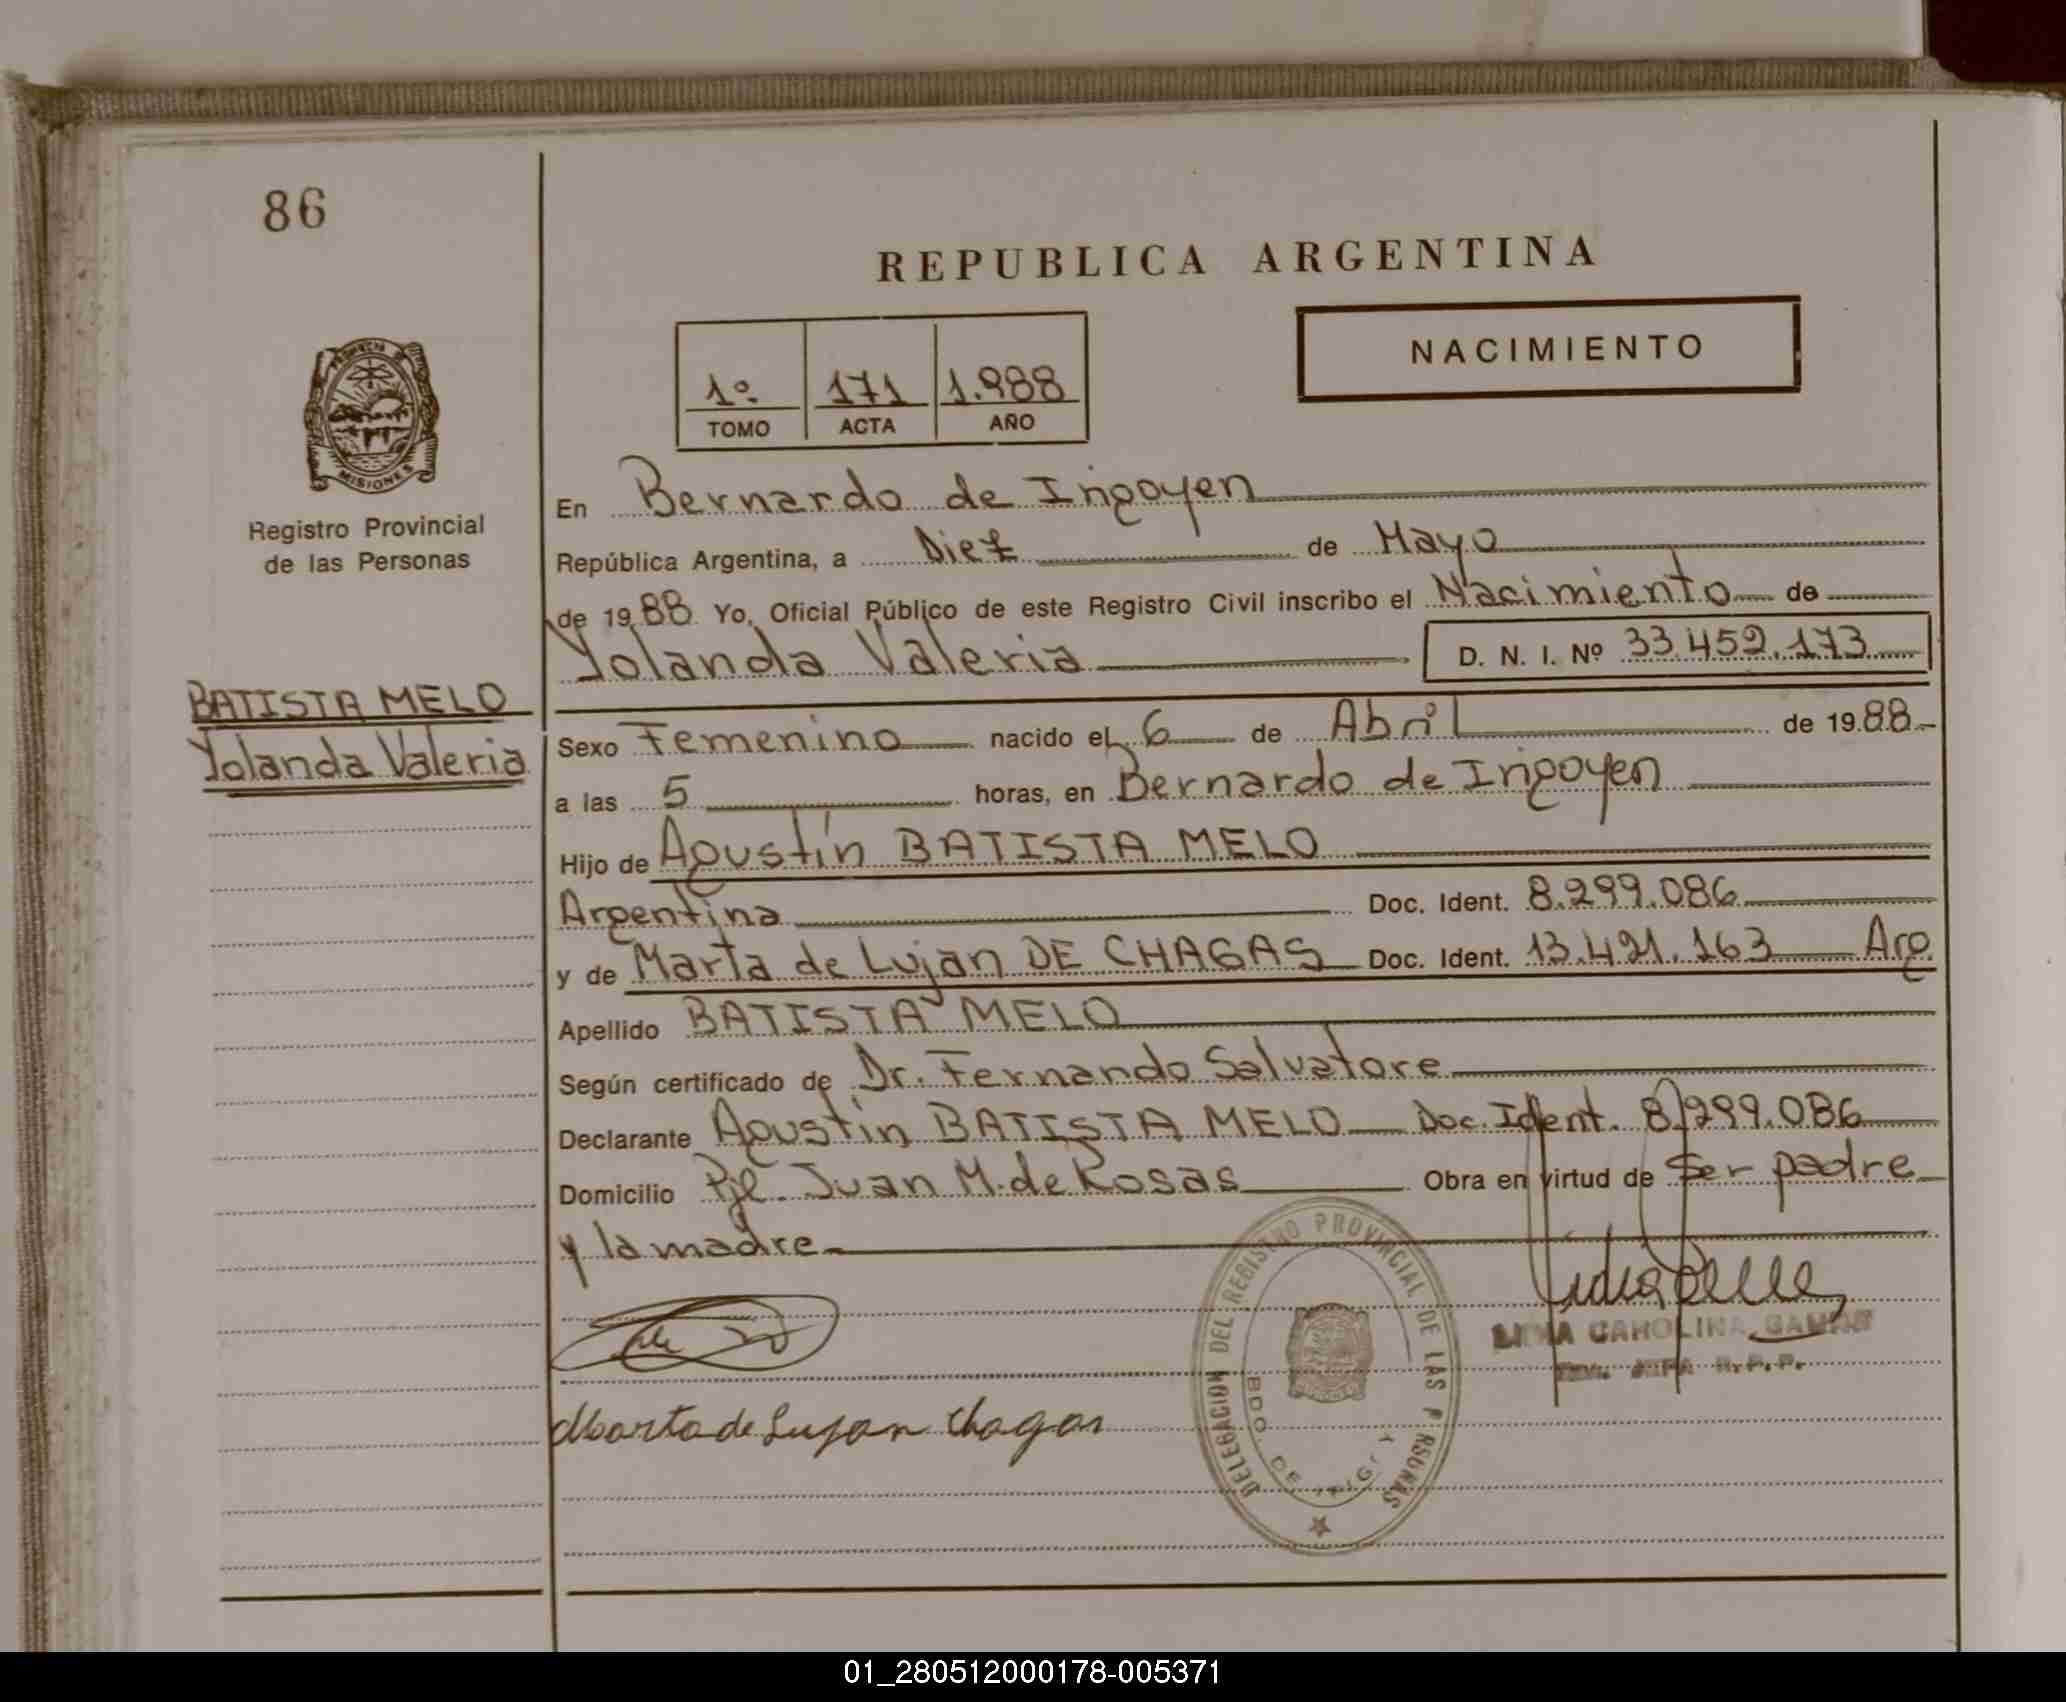 86
REPUBLICA ARGENTINA
NACIMIENTO
1º 171 1.988
TOMO ACTA AÑO
PROVINCIA DE
MISIONES
Registro Provincial
de las Personas
BATISTA MELO
Yolanda Valeria
En Bernardo de Irigoyen
República Argentina, a Diez de Mayo
de 1988 Yo, Oficial Público de este Registro Civil inscribo el Nacimiento de
Yolanda Valeria D. N. I. Nº 33.452.173
Sexo Femenino nacido el 6 de Abril de 1988
a las 5 horas, en Bernardo de Irigoyen
Hijo de Agustín BATISTA MELO
Argentina Doc. Ident. 8.299.086
y de Marta de Luján DE CHAGAS Doc. Ident. 13.421.163 Arg.
Apellido BATISTA MELO
Según certificado de Dr. Fernando Salvatore
Declarante Agustín BATISTA MELO Doc. Ident. 8.299.086
Domicilio Pje. Juan M. de Rosas Obra en virtud de Ser padre
y la madre
DELEGACION DEL REGISTRO PROVINCIAL DE LAS P RSONAS
BDO. DE
CAROLINA
R.P.P.
Marta de Lujan Chagas
01_280512000178-005371